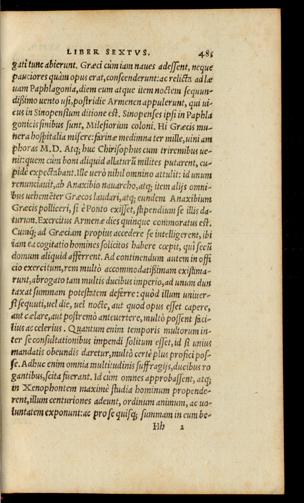 LIBER SEXTVS. 485
gati tunc abierunt. Græci cùm iam naues adessent, neque
pauciores quàm opus erat, conscenderunt: ac relicta ad læ
uam Paphlagonia, diem eum atque item noctem sequun-
dissimo uento usi, postridie Armenen appulerunt, qui ui-
cus in Sinopensium ditione est. Sinopenses ipsi in Paphla
gonicis finibus sunt, Milesiorum coloni. Hi Græcis mu-
nera hospitalia misere: farinæ medimna ter mille, uini am
phoras M.D. Atq; huc Chirisophus cum triremibus ue-
nit: quem cùm boni aliquid allaturū milites putarent, cu-
pidè expectabant. Ille uerò nihil omnino attulit: id unum
renunciauit, ab Anaxibio nauarcho, atq; item alijs omni-
bus uehemēter Græcos laudari, atq; eundem Anaxibium
Græcis polliceri, si è Ponto exissent, stipendium se illis da-
turum. Exercitus Armenæ dies quinque commoratus est.
Cumq; ad Græciam propius accedere se intelligerent, ibi
iam ea cogitatio homines solicitos habere cœpit, qui secū
domum aliquid afferrent. Ad continendum autem in offi
cio exercitum, rem multò accommodatissimam existima-
runt, abrogato tam multis ducibus imperio, ad unum dun
taxat summam potestatem deferre: quòd illum uniuer-
si sequuti, uel die, uel nocte, aut quod opus esset capere,
aut celare, aut postremò antеuertere, multò possent faci-
lius ac celerius. Quantum enim temporis multorum in-
ter se consultationibus impendi solitum esset, id si unius
mandatis obeundis daretur, multò certè plus profici pos-
se. Adhuc enim omnia multitudinis suffragijs, ducibus ro
gantibus, scita fuerant. Id cùm omnes approbassent, atq;
in Xenophontem maximè studia hominum propende-
rent, illum centuriones adeunt, ordinum animum, ac uo-
luntatem exponunt: ac pro se quisq; summam in eum be-
Hh 2